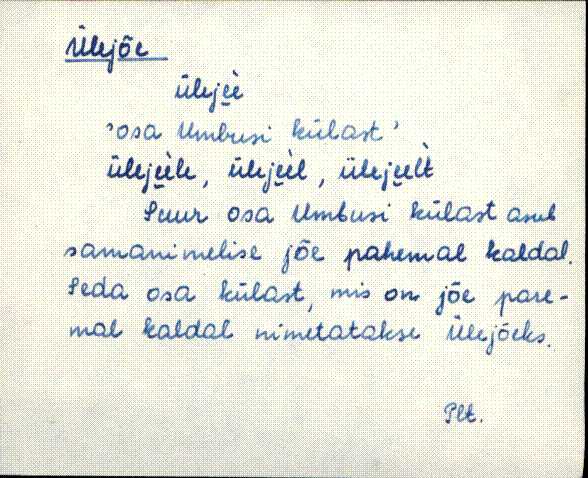 Ülejõe
ülije̮è
'osa Umbusi külast'
üleje̮èle, üleje̮èl, üleje̮èlt̀
Suur osa Umbusi külast asub
samanimelise jõe pahemal kaldal.
Seda osa külast, mis on jõe pare-
mal kaldal nimetatakse Ülejõeks.
Plt.